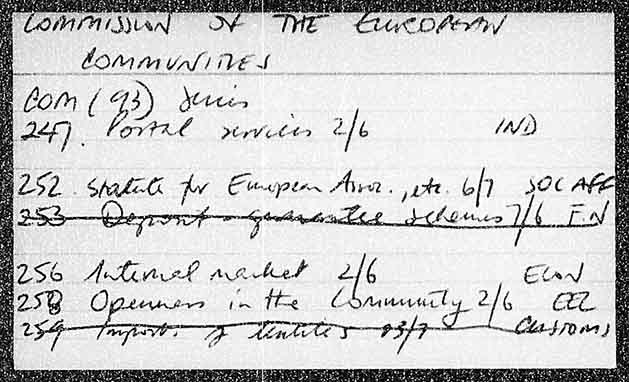 COMMISSION OF THE EUROPEAN
COMMUNITIES
COM (93) series
247. Postal services 2/6 IND
252. Statute for European Assoc., etc. 6/7 SOC AFF
253 Deposit - guarantee schemes 7/6 FIN
256 Internal market 2/6 ECON
258 Openness in the Community 2/6 EEC
259 Imports of textiles 23/7 CUSTOMS